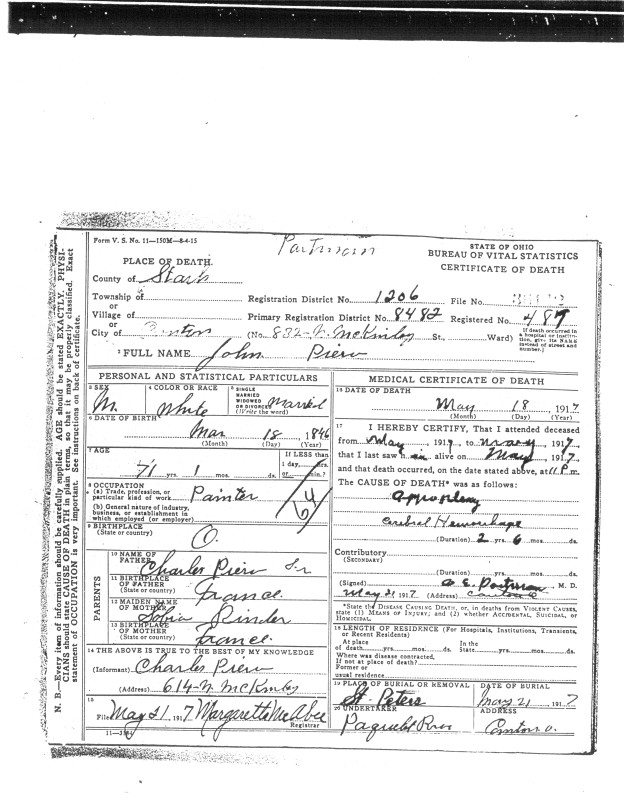 Form V. S. No. 11—150M—8-4-15
STATE OF OHIO
BUREAU OF VITAL STATISTICS
CERTIFICATE OF DEATH
PLACE OF DEATH
County of Stark
Township of
or
Village of
or
City of Canton
Registration District No. 1206
File No.
Primary Registration District No. 8482
Registered No. 487
(No. 832-N. McKinley St., Ward)
If death occurred in a hospital or institution, give its NAME instead of street and number.
2 FULL NAME John
PERSONAL AND STATISTICAL PARTICULARS
3 SEX M.
4 COLOR OR RACE White
5 SINGLE MARRIED WIDOWED OR DIVORCED (Write the word) Married
6 DATE OF BIRTH
Mar 18 1846
(Month) (Day) (Year)
7 AGE
71 yrs. 1 mos. ds.
If LESS than
1 day, hrs.
or min.?
8 OCCUPATION
(a) Trade, profession, or
particular kind of work Painter
(b) General nature of industry,
business, or establishment in
which employed (or employer)
9 BIRTHPLACE
(State or country) O.
PARENTS
10 NAME OF
FATHER Charles Sr
11 BIRTHPLACE
OF FATHER
(State or country) France
12 MAIDEN NAME
OF MOTHER
13 BIRTHPLACE
OF MOTHER
(State or country) France
14 THE ABOVE IS TRUE TO THE BEST OF MY KNOWLEDGE
(Informant) Charles
(Address) 614-N McKinley
15
Filed May 21, 1917 Margaretta McAbee
Registrar
MEDICAL CERTIFICATE OF DEATH
16 DATE OF DEATH
May 18, 1917
(Month) (Day) (Year)
17
I HEREBY CERTIFY, That I attended deceased
from May, 1917, to May, 1917,
that I last saw him alive on May, 1917
and that death occurred, on the date stated above, at 11 P m.
The CAUSE OF DEATH* was as follows:
Apoplexy
Cerebral Hemorrhage
(Duration) 2 yrs. 6 mos. ds.
Contributory
(SECONDARY)
(Duration) yrs. mos. ds.
(Signed) Portman, M. D.
May 21 1917 (Address) Canton O
*State the DISEASE CAUSING DEATH, or, in deaths from VIOLENT CAUSES,
state (1) MEANS OF INJURY; and (2) whether ACCIDENTAL, SUICIDAL, or
HOMICIDAL.
18 LENGTH OF RESIDENCE (For Hospitals, Institutions, Transients,
or Recent Residents)
At place
of death yrs. mos. ds.
In the
State yrs. mos. ds.
Where was disease contracted,
If not at place of death?
Former or
usual residence
19 PLACE OF BURIAL OR REMOVAL
St. Peters
DATE OF BURIAL
May 21, 1917
20 UNDERTAKER
ADDRESS
Canton O.
N. B.—Every item of information should be carefully supplied. AGE should be stated EXACTLY. PHYSI-
CIANS should state CAUSE OF DEATH in plain terms, so that it may be properly classified. Exact
statement of OCCUPATION is very important. See instructions on back of certificate.